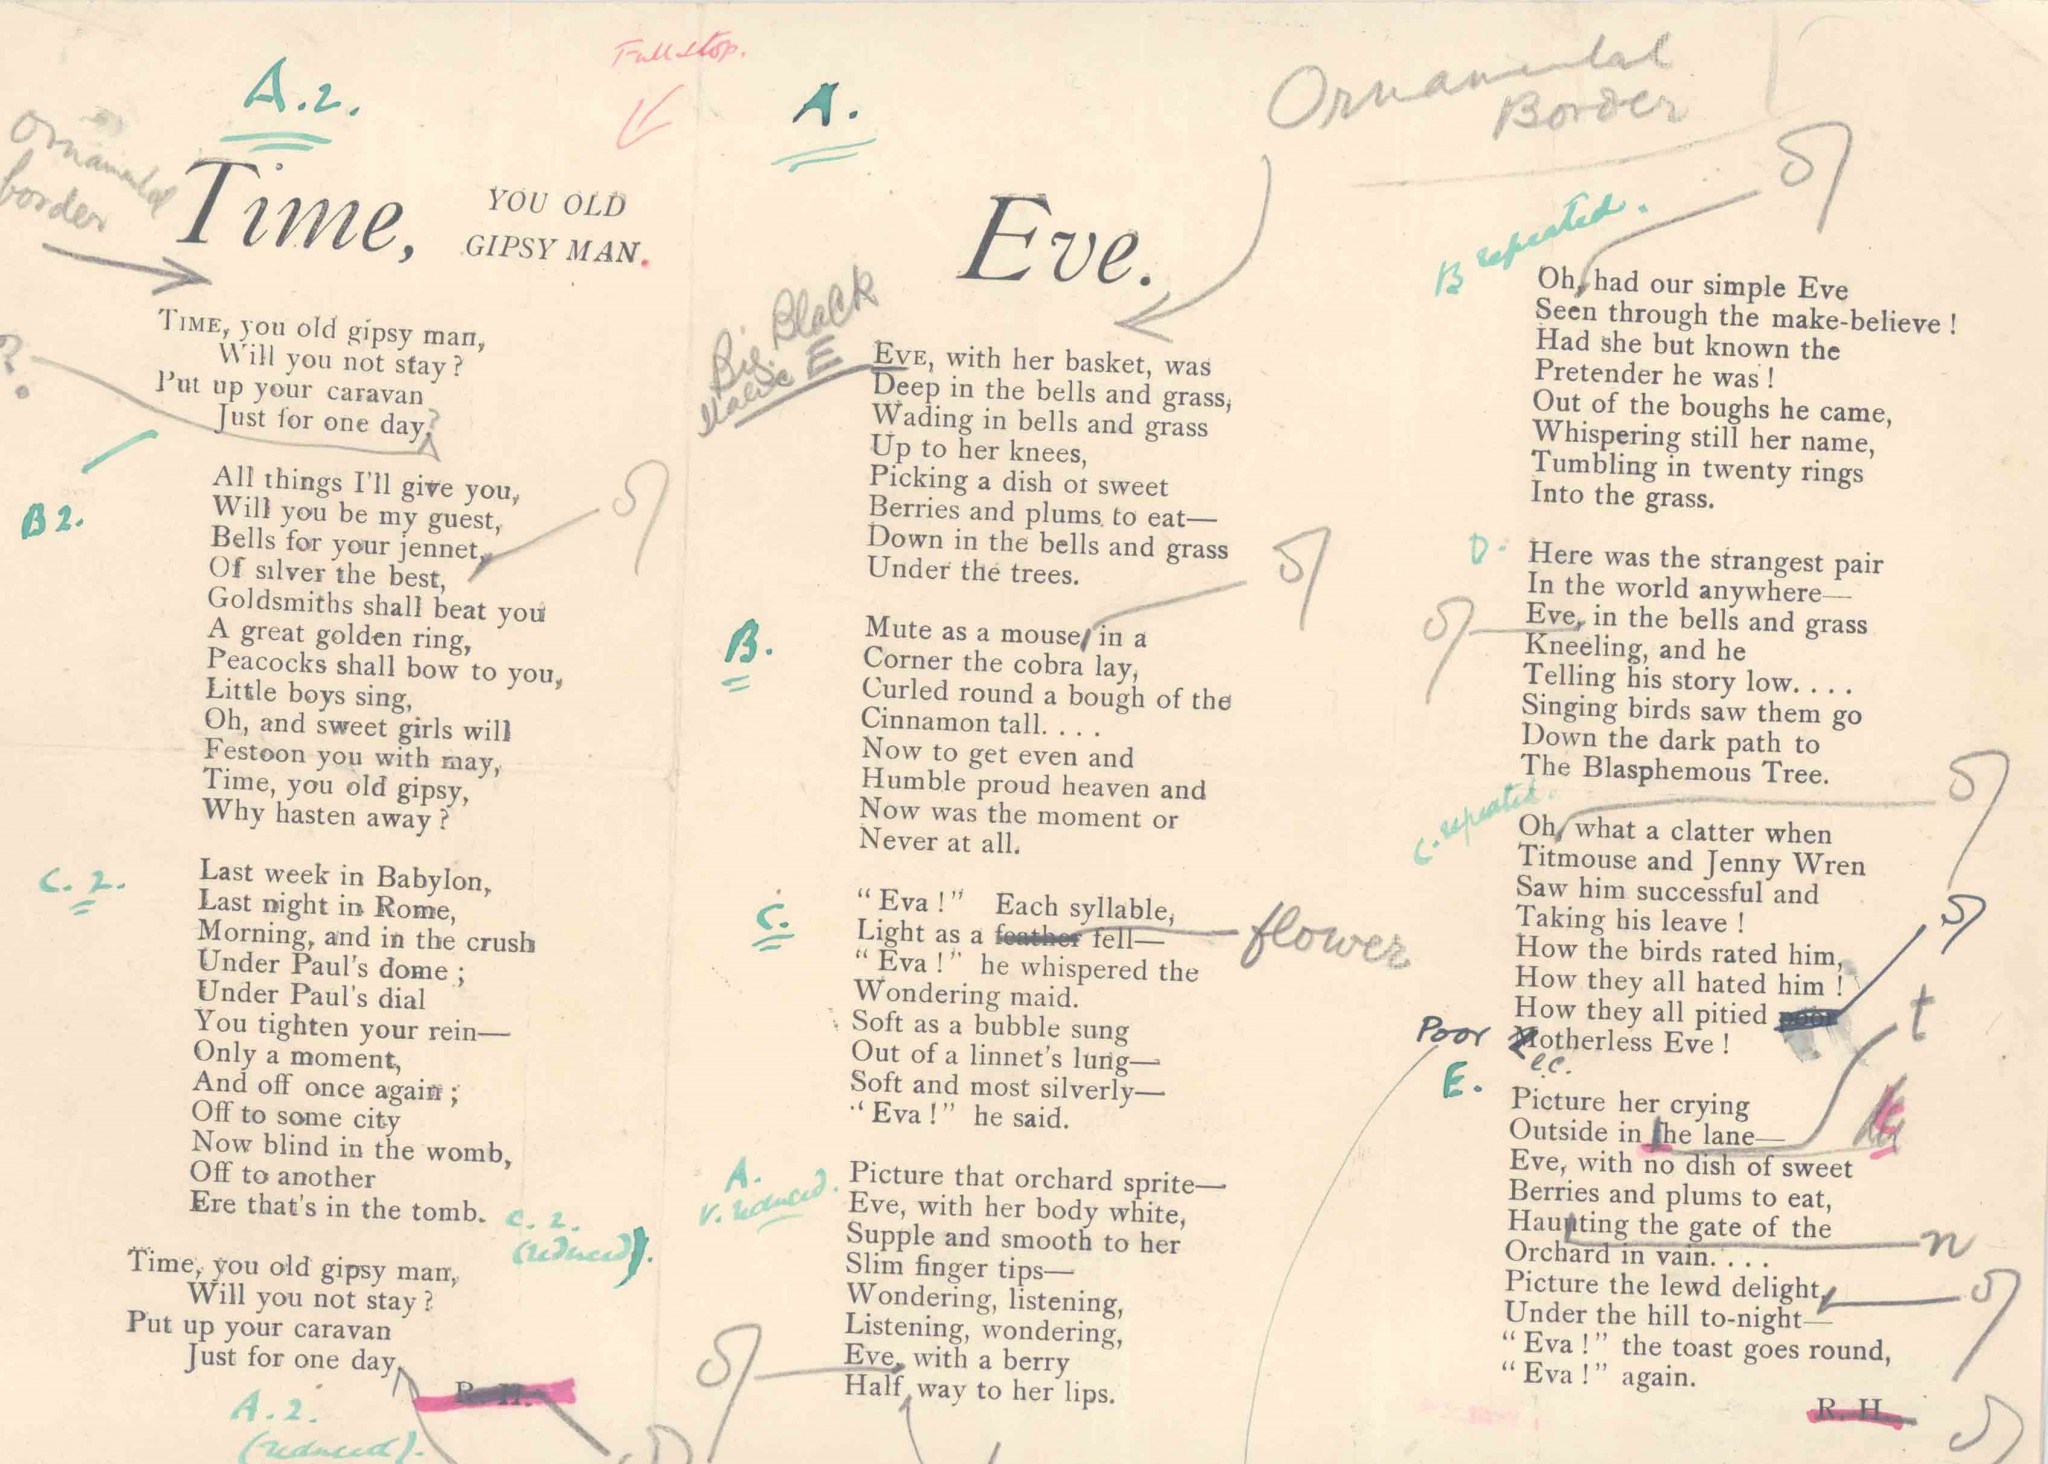 A.2.
Full stop.
Ornamental
border
Time,
YOU OLD
GIPSY MAN.
TIME, you old gipsy man,
Will you not stay?
Put up your caravan
Just for one day?
?
B2.
All things I'll give you,
Will you be my guest,
Bells for your jennet,
Of silver the best,
Goldsmiths shall beat you
A great golden ring,
Peacocks shall bow to you,
Little boys sing,
Oh, and sweet girls will
Festoon you with may,
Time, you old gipsy,
Why hasten away?
C.2.
Last week in Babylon,
Last night in Rome,
Morning, and in the crush
Under Paul's dome;
Under Paul's dial
You tighten your rein—
Only a moment,
And off once again;
Off to some city
Now blind in the womb,
Off to another
Ere that's in the tomb.
C.2.
(reduced).
Time, you old gipsy man,
Will you not stay?
Put up your caravan
Just for one day,
R. H.
A.2.
(reduced).
A.
Ornamental
Border
Eve.
Big Black
Italic E
EVE, with her basket, was
Deep in the bells and grass,
Wading in bells and grass
Up to her knees,
Picking a dish of sweet
Berries and plums to eat—
Down in the bells and grass
Under the trees.
B.
Mute as a mouse, in a
Corner the cobra lay,
Curled round a bough of the
Cinnamon tall. . . .
Now to get even and
Humble proud heaven and
Now was the moment or
Never at all.
C.
"Eva!" Each syllable,
Light as a feather fell—
flower
"Eva!" he whispered the
Wondering maid.
Soft as a bubble sung
Out of a linnet's lung—
Soft and most silverly—
"Eva!" he said.
A.
v. reduced.
Picture that orchard sprite—
Eve, with her body white,
Supple and smooth to her
Slim finger tips—
Wondering, listening,
Listening, wondering,
Eve, with a berry
Half way to her lips.
B repeated.
Oh, had our simple Eve
Seen through the make-believe!
Had she but known the
Pretender he was!
Out of the boughs he came,
Whispering still her name,
Tumbling in twenty rings
Into the grass.
D.
Here was the strangest pair
In the world anywhere—
Eve, in the bells and grass
Kneeling, and he
Telling his story low. . . .
Singing birds saw them go
Down the dark path to
The Blasphemous Tree.
C. repeated.
Oh, what a clatter when
Titmouse and Jenny Wren
Saw him successful and
Taking his leave!
How the birds rated him,
How they all hated him!
How they all pitied poor
Poor Motherless Eve!
l.c.
t
E.
Picture her crying
Outside in the lane—
Eve, with no dish of sweet
Berries and plums to eat,
Haunting the gate of the
n
Orchard in vain. . . .
Picture the lewd delight,
Under the hill to-night—
"Eva!" the toast goes round,
"Eva!" again.
R. H.